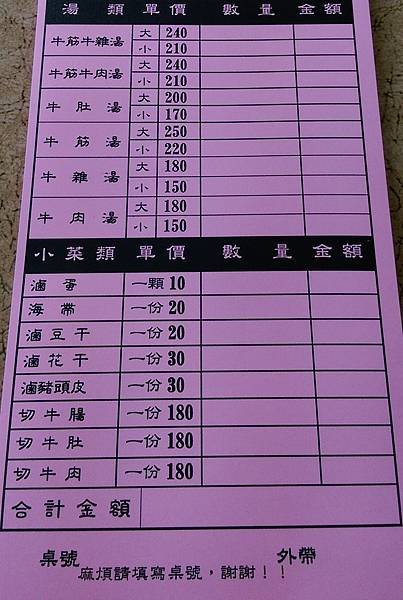 湯類 單價 數量 金額
牛筋牛雜湯 大 240
小 210
牛筋牛肉湯 大 240
小 210
牛肚湯 大 200
小 170
牛筋湯 大 250
小 220
牛雜湯 大 180
小 150
牛肉湯 大 180
小 150
小菜類 單價 數量 金額
滷蛋 一顆 10
海帶 一份 20
滷豆干 一份 20
滷花干 一份 30
滷豬頭皮 一份 30
切牛腸 一份 180
切牛肚 一份 180
切牛肉 一份 180
合計金額
桌號 外帶
麻煩請填寫桌號，謝謝！！